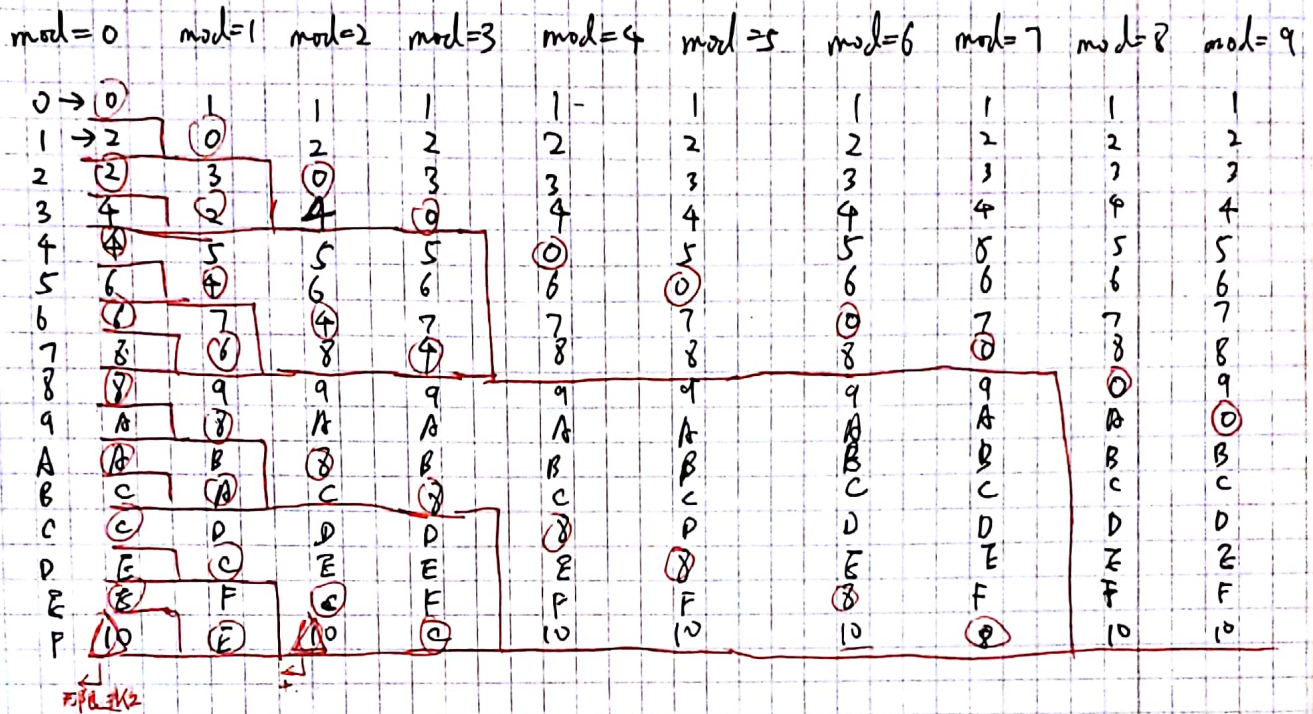 mod=0 mod=1 mod=2 mod=3 mod=4 mod=5 mod=6 mod=7 mod=8 mod=9
0 → 0 1 1 1 1 1 1 1 1 1
1 → 2 0 2 2 2 2 2 2 2 2
2 2 3 0 3 3 3 3 3 3 3
3 4 2 4 0 4 4 4 4 4 4
4 4 5 5 5 0 5 5 5 5 5
5 6 4 6 6 6 0 6 6 6 6
6 6 7 4 7 7 7 0 7 7 7
7 8 6 8 4 8 8 8 0 8 8
8 8 9 9 9 9 9 9 9 0 9
9 A 8 A A A A A A A 0
A A B 8 B B B B B B B
B C A C 8 C C C C C C
C C D D D 8 D D D D D
D E C E E E 8 E E E E
E E F C F F F 8 F F F
F 10 E 10 C 10 10 10 8 10 10